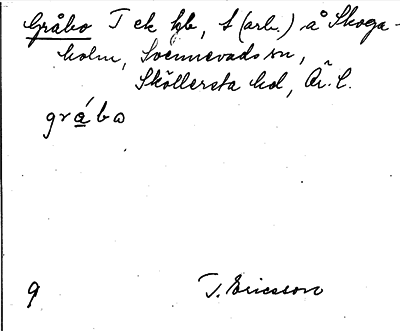 Gråbo T ek hb, t (arb.) å Skoga-
holm, Svennevads sn,
Sköllersta hd, Ör. l.
gråbω
9 T. Ericsson